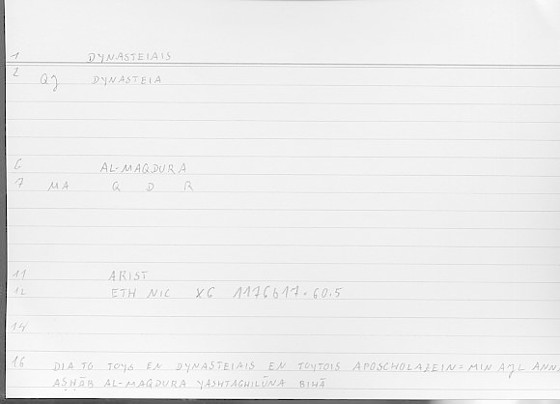 1 DYNASTEIAIS
2 QJ DYNASTEIA
6 AL-MAQDURA
7 MA Q D R
11 ARIST
12 ETH NIC X6 1176b17. 60.5
14
16 DIA TO TOYS EN DYNASTEIAIS EN TOYTOIS APOSCHOLAZEIN= MIN AJL ANNA
AṢḤĀB AL-MAQDURA YASHTAGHILŪNA BIHĀ